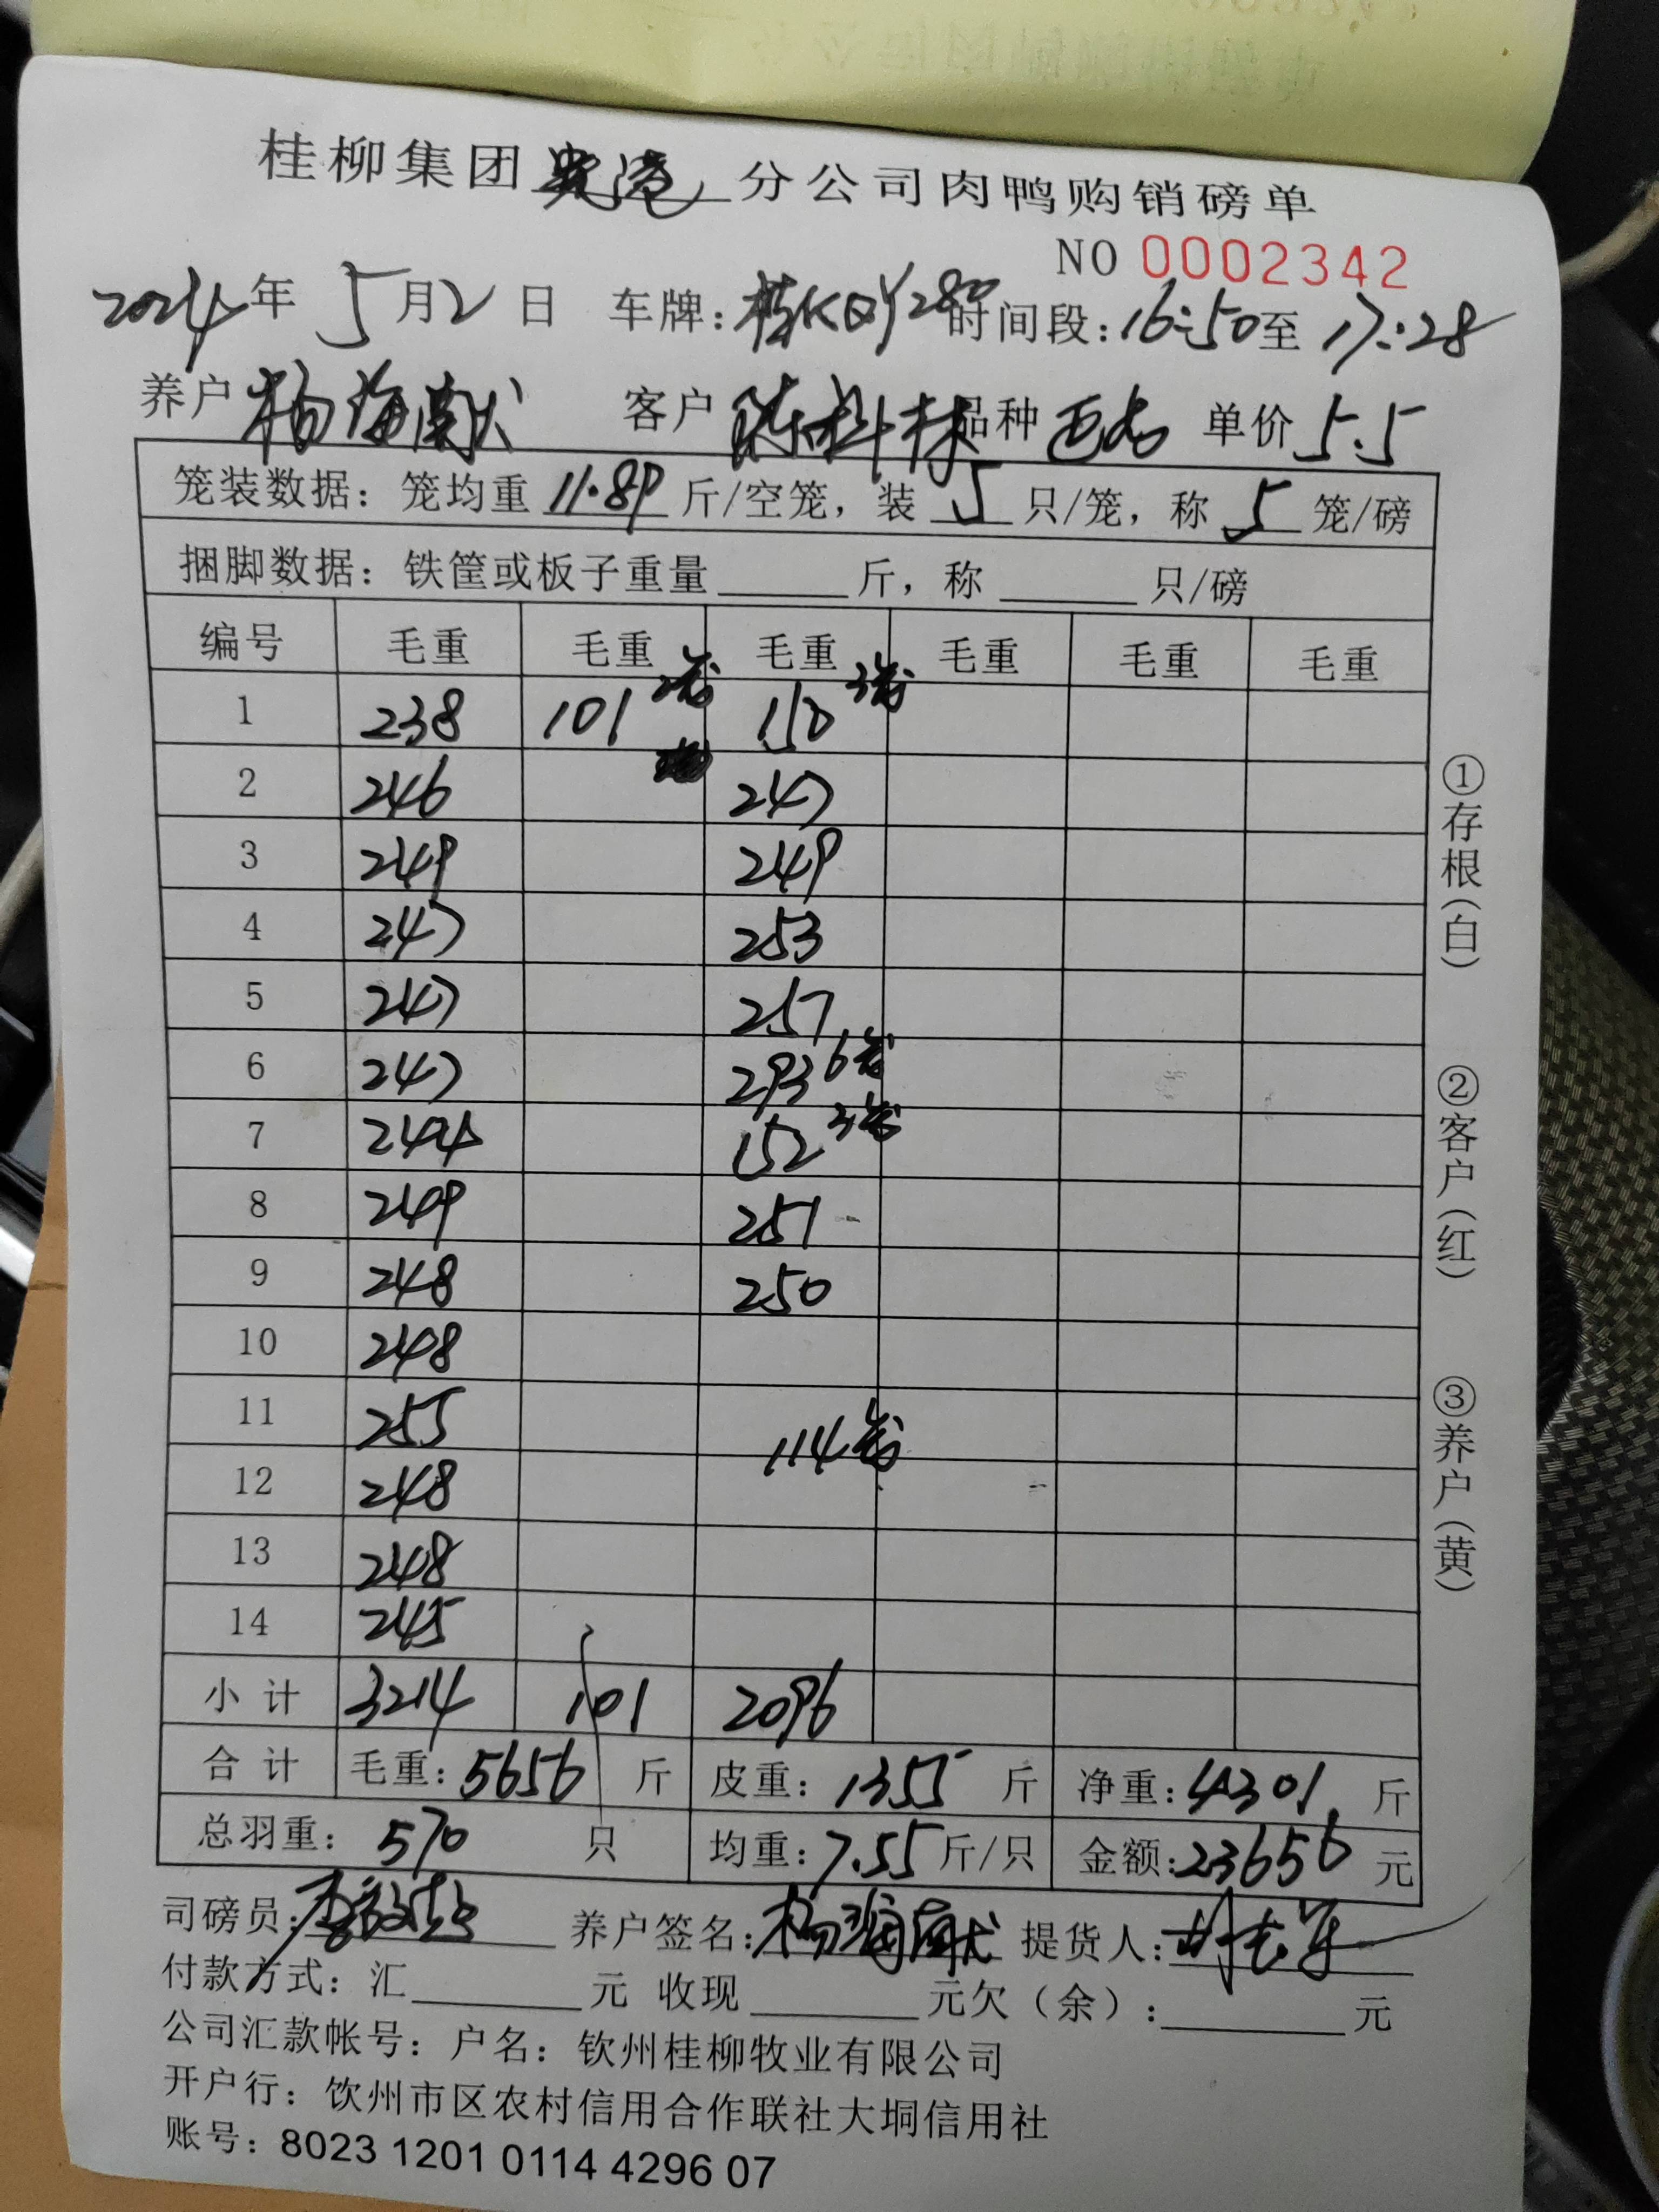 桂柳集团贵港分公司肉鸭购销磅单
NO 0002342
2024年 5月2日 车牌:桂KQY280 时间段:16:50至 17:28
养户 杨海南犬 客户 陈科林 品种 巴吉 单价 5.5
笼装数据: 笼均重 11.89 斤/空笼, 装 5 只/笼, 称 5 笼/磅
捆脚数据: 铁筐或板子重量 斤, 称 只/磅
编号 毛重 毛重 毛重 毛重 毛重 毛重
1 238 101 2笼 150 3笼
2 246 247
3 249 249
4 247 253
5 247 257
6 247 293 6笼
7 244 152 3笼
8 249 251
9 248 250
10 248
11 255 114笼
12 248
13 248
14 245
小计 3214 101 2096
合计 毛重: 5656 斤 皮重: 1355 斤 净重: 4301 斤
总羽重: 570 只 均重: 7.55 斤/只 金额: 23656 元
司磅员: 养户签名: 提货人:
付款方式: 汇 元 收现 元欠(余): 元
公司汇款帐号: 户名: 钦州桂柳牧业有限公司
开户行: 饮州市区农村信用合作联社大垌信用社
账号: 8023 1201 0114 4296 07
①存根(白)
②客户(红)
③养户(黄)